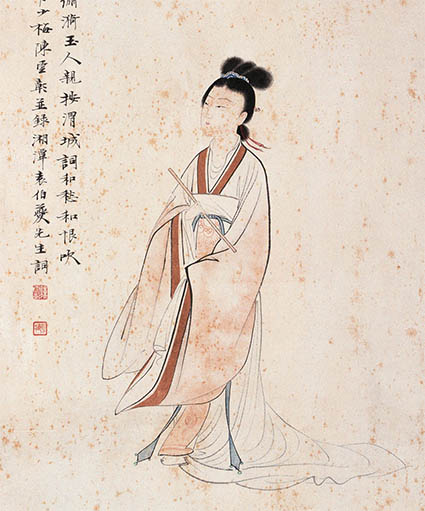 玉人親按渭城詞和愁和恨吹
少梅陳雲彰並錄湘潭袁伯夔先生詞